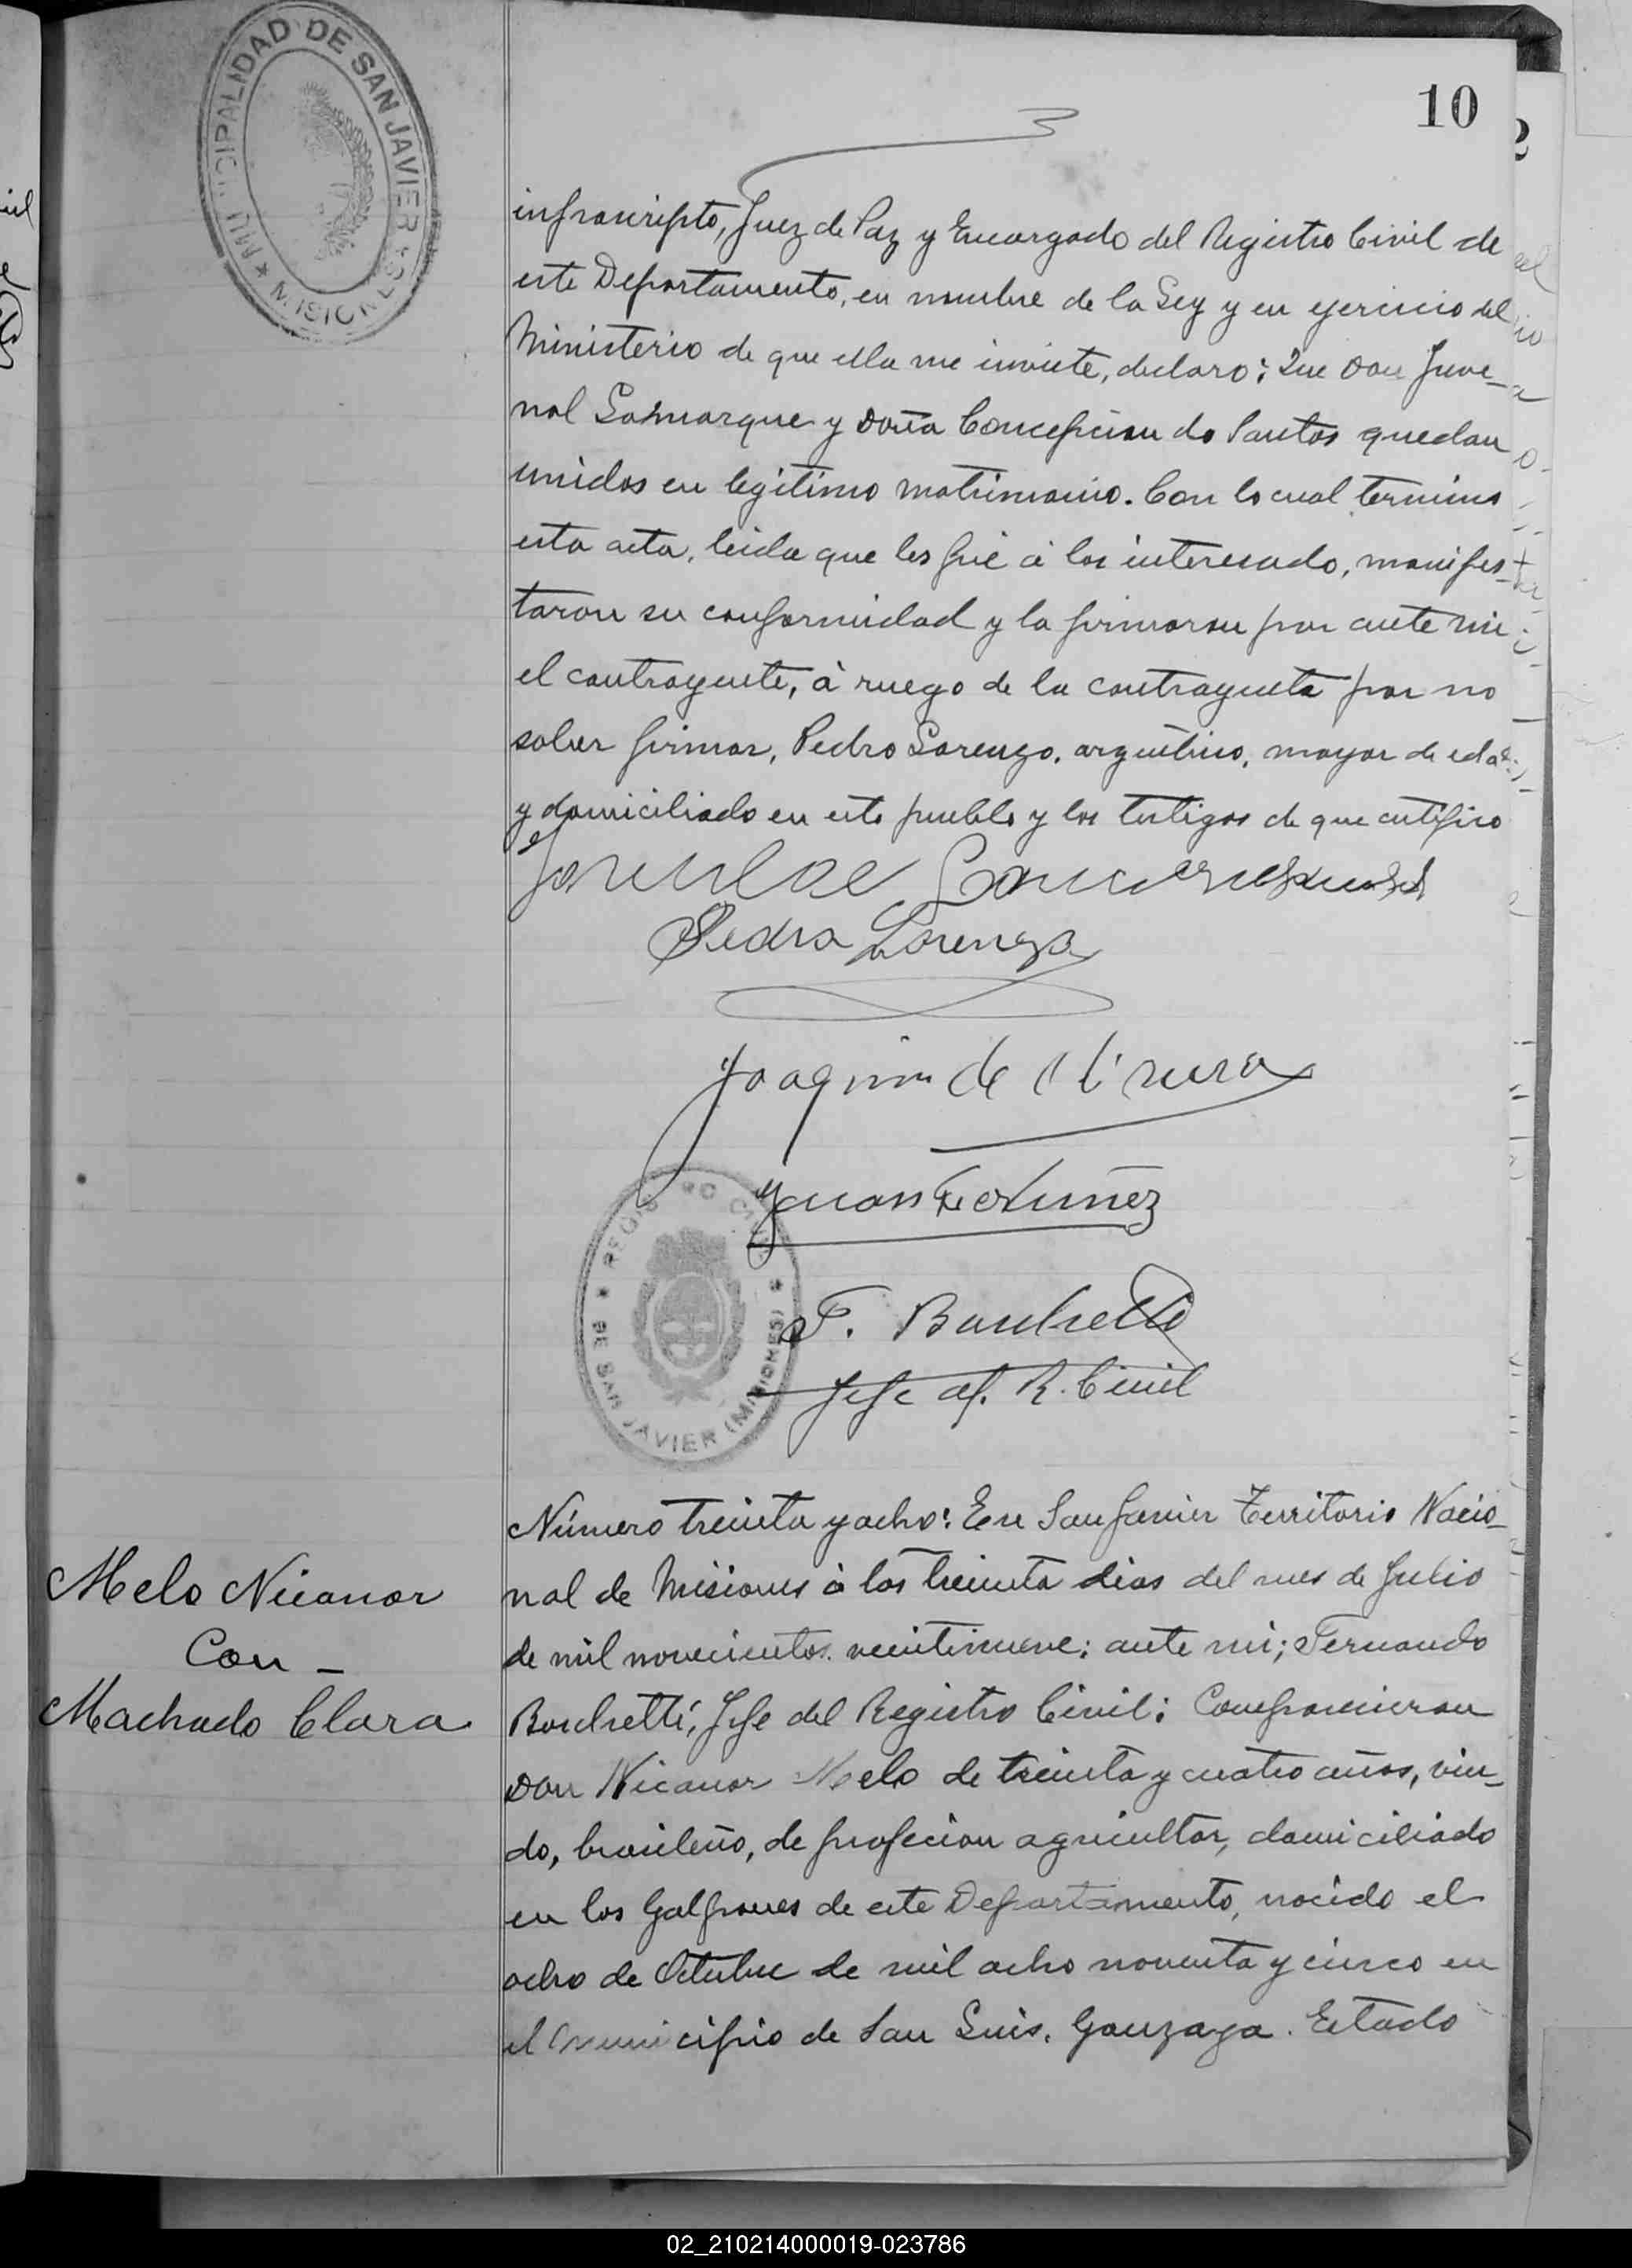 MUNICIPALIDAD DE SAN JAVIER
* MISIONES *
10
infrascripto, Juez de Paz y Encargado del Registro Civil de
este Departamento, en nombre de la Ley y en ejercicio del
Ministerio de que ella me inviste, declaro: Que Don Juve-
nal Lamarque y Doña Concepcion do Santos quedan
unidos en legitimo matrimonio. Con lo cual termino
esta acta, leida que les fué á los interesado, manifes-
taron su conformidad y la firmaron por ante mi
el contrayente, à ruego de la contrayente por no
saber firmar, Pedro Lorenzo, argentino, mayor de edad
y domiciliado en este pueblo y los testigos de que certifico
Pedro Lorenzo
Joaquin de
Juan Nuñez
F. Borchetti
Jefe of. R. Civil
REGISTRO CIVIL
* DE SAN JAVIER (MISIONES) *
Número treinta y ocho: En San Javier Territorio Nacio-
Melo Nicanor
nal de Misiones à los treinta dias del mes de Julio
Con -
de mil novecientos veintinueve: ante mi; Fernando
Machado Clara
Borchetti, Jefe del Registro Civil: Comparecieron
Don Nicanor Melo de treinta y cuatro años, viu-
do, brasileño, de profecion agricultor, domiciliado
en los Galpones de este Departamento, nacido el
ocho de Octubre de mil ocho noventa y cinco en
el municipio de San Luis, Gonzaga. Estado
02_210214000019-023786